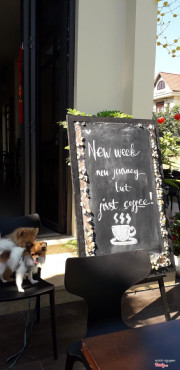 New week
new journey
but
first coffee!